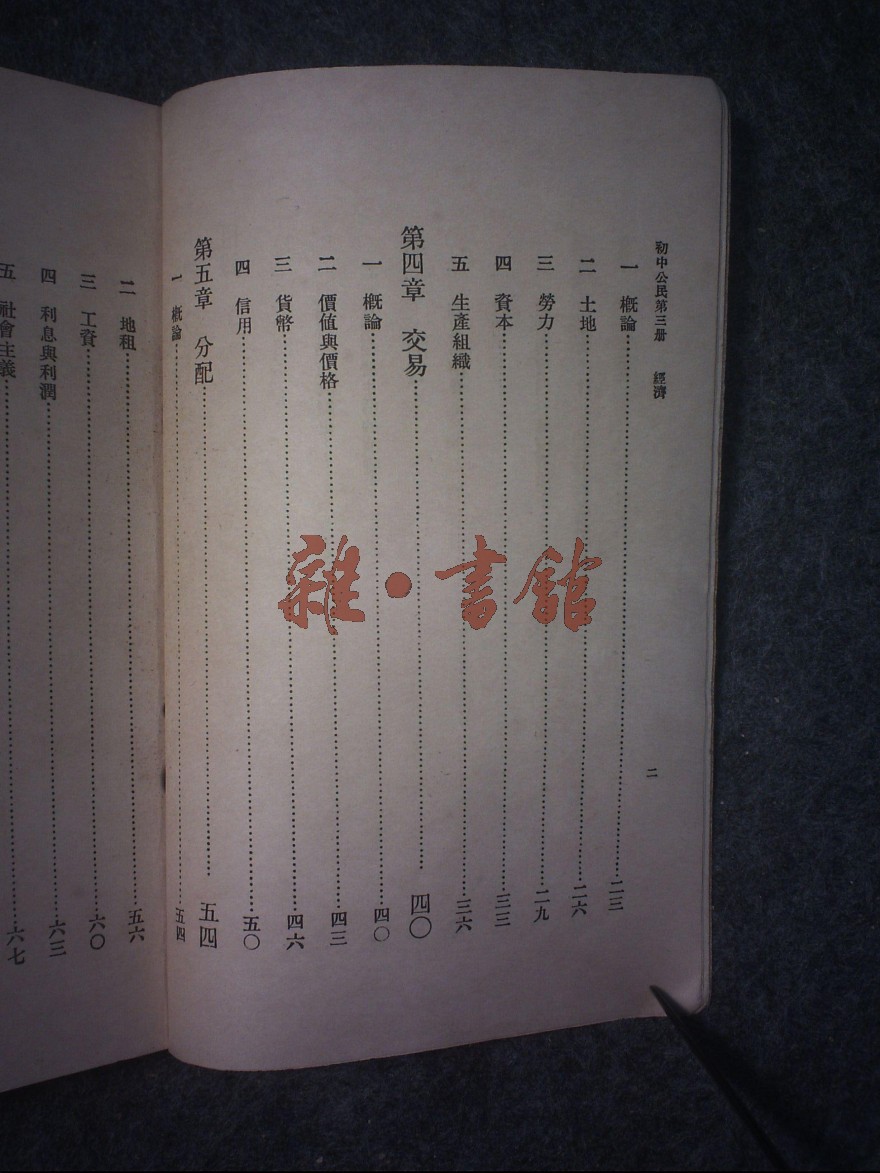 初中公民第三册 經濟
二
一 概論 二三
二 土地 二六
三 勞力 二九
四 資本 三三
五 生產組織 三六
第四章 交易 四〇
一 概論 四〇
二 價值與價格 四三
三 貨幣 四六
四 信用 五〇
第五章 分配 五四
一 概論 五四
二 地租 五六
三 工資 六〇
四 利息與利潤 六三
五 社會主義 六七
雜·書館